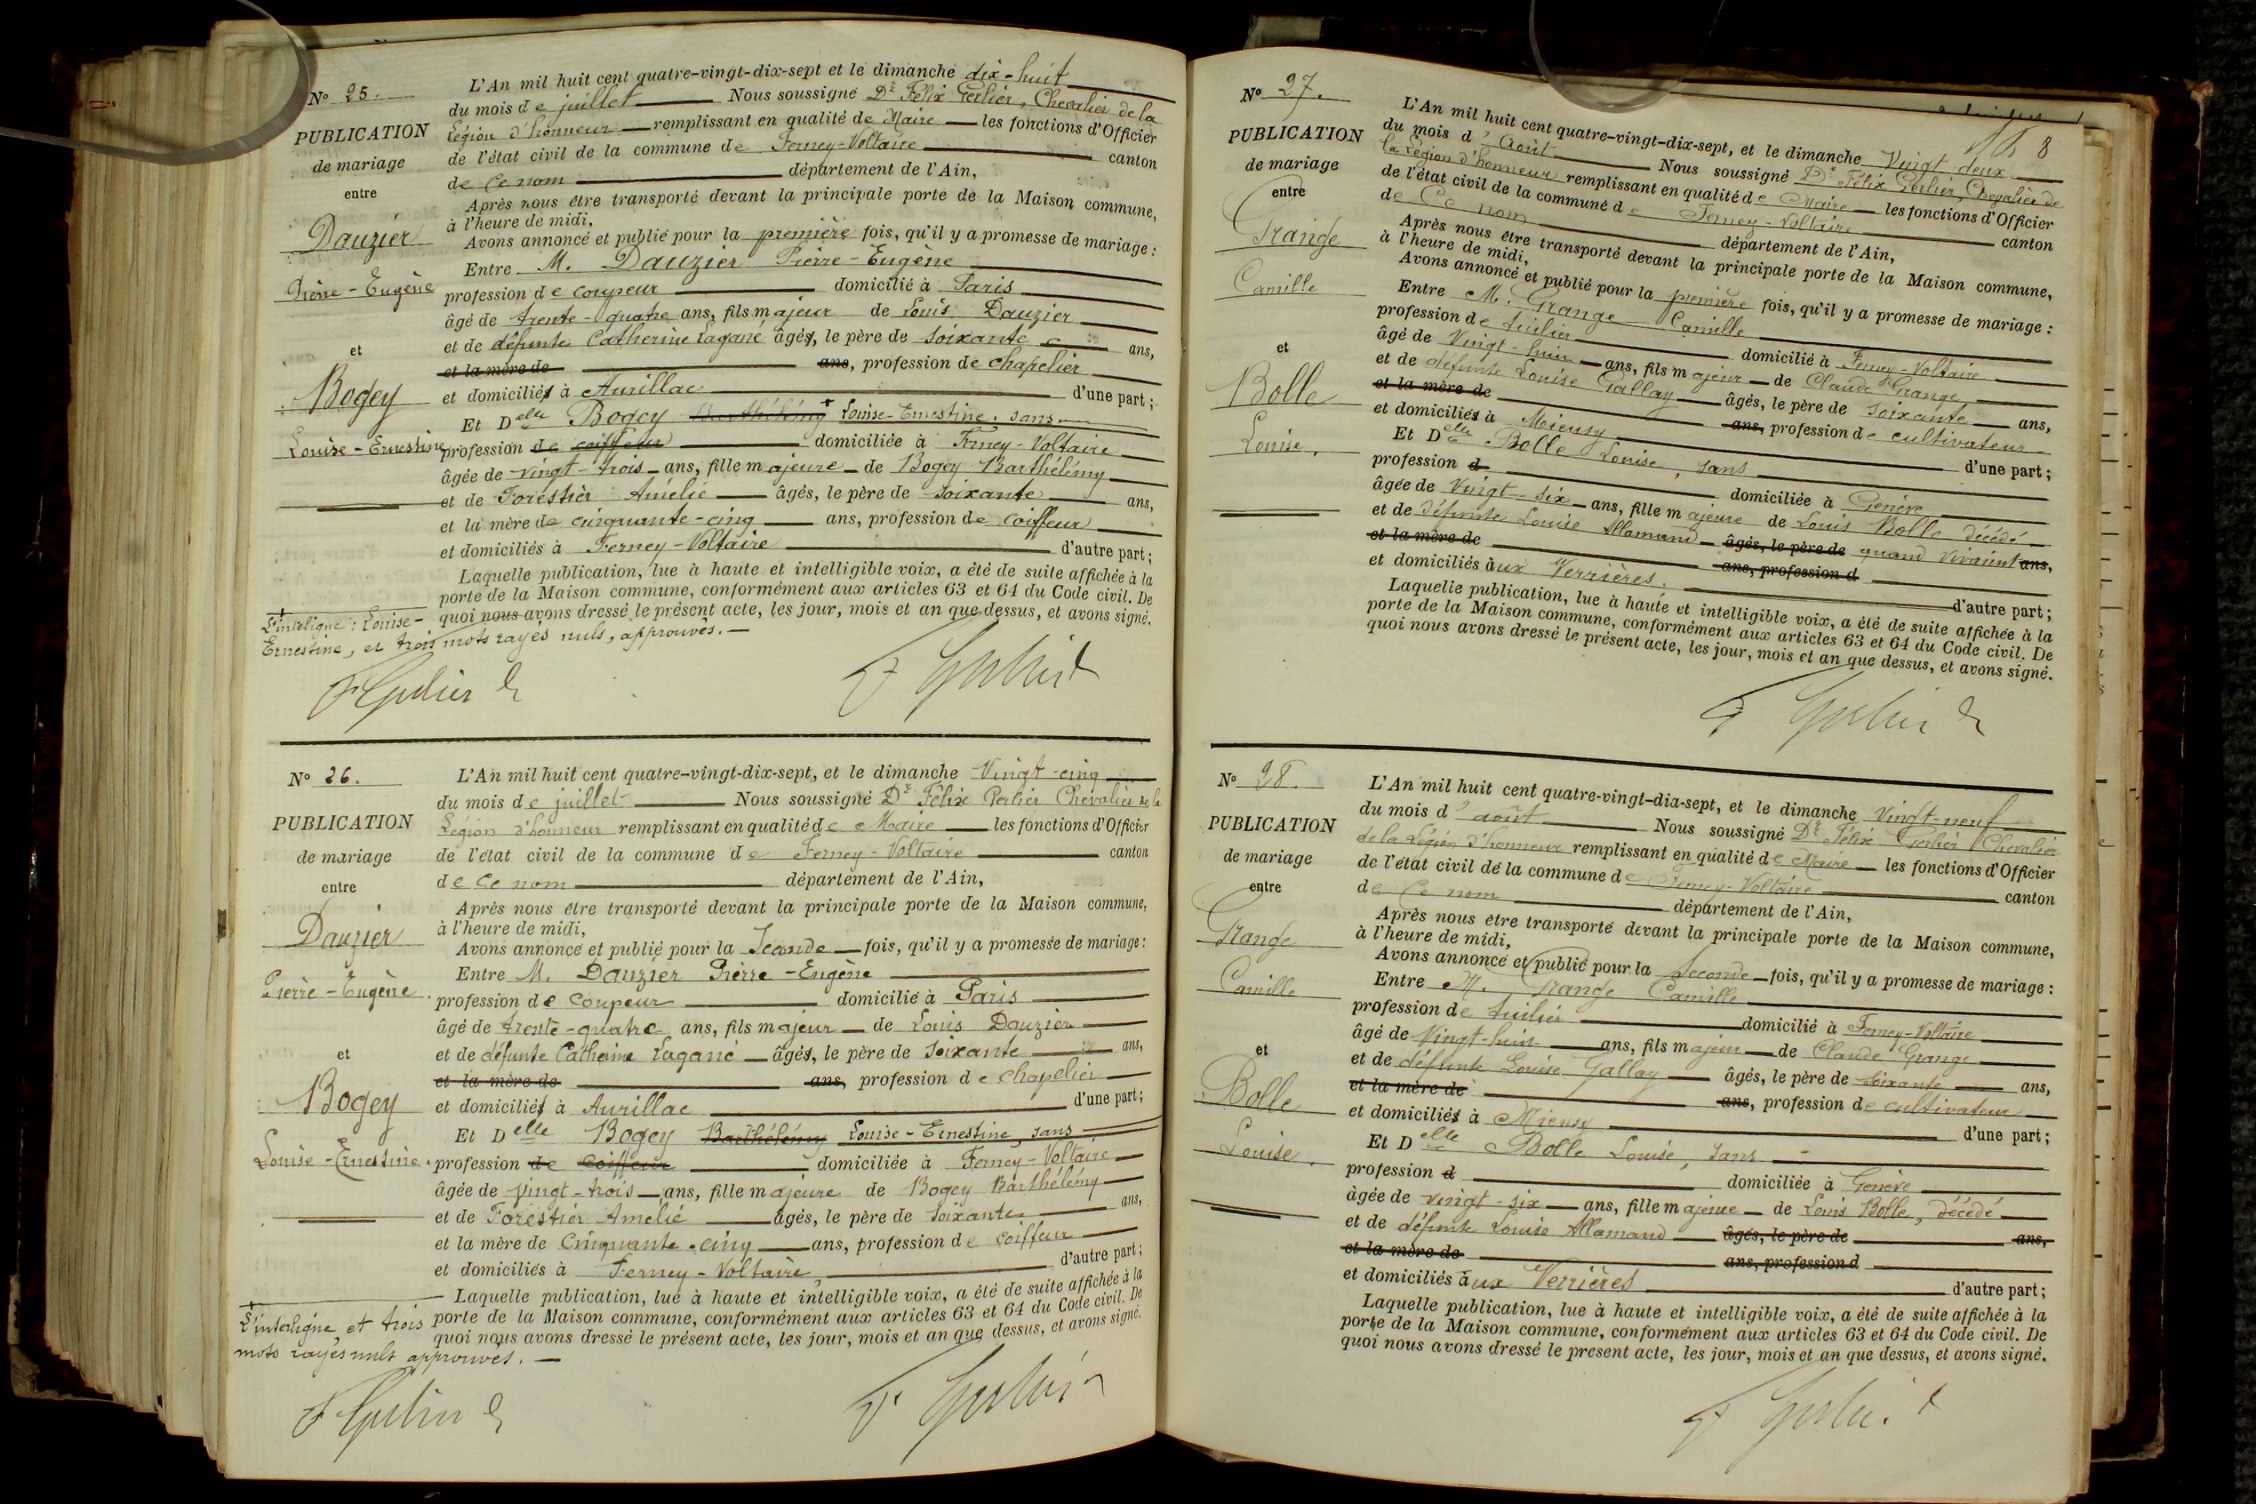 N° 25.
PUBLICATION
de mariage
entre
Dauzier
Pierre-Eugène
et
Bogey
Louise-Ernestine
L'An mil huit cent quatre-vingt-dix-sept et le dimanche dix-huit
du mois de juillet Nous soussigné Dr Félix Gerlier, Chevalier de la
Légion d'honneur remplissant en qualité de Maire les fonctions d'Officier
de l'état civil de la commune de Ferney-Voltaire canton
de Ce nom département de l'Ain,
Après nous être transporté devant la principale porte de la Maison commune,
à l'heure de midi,
Avons annoncé et publié pour la première fois, qu'il y a promesse de mariage :
Entre M. Dauzier Pierre-Eugène
profession de coupeur domicilié à Paris
âgé de trente-quatre ans, fils majeur de Louis Dauzier
et de défunte Catherine Lagané âgés, le père de soixante ans,
et la mère de ans, profession de chapelier
et domiciliés à Aurillac d'une part ;
Et Delle Bogey Barthélémy Louise-Ernestine, sans
profession de coiffeur domiciliée à Ferney-Voltaire
âgée de vingt-trois ans, fille majeure de Bogey Barthélémy
et de Forestier Amélie âgés, le père de soixante ans,
et la mère de cinquante-cinq ans, profession de coiffeur
et domiciliés à Ferney-Voltaire d'autre part ;
Laquelle publication, lue à haute et intelligible voix, a été de suite affichée à la
porte de la Maison commune, conformément aux articles 63 et 64 du Code civil. De
quoi nous avons dressé le présent acte, les jour, mois et an que dessus, et avons signé.
L'interligne : Louise-
Ernestine, et trois mots rayés nuls, approuvés.
F Gerlier
F Gerlier
N° 26.
PUBLICATION
de mariage
entre
Dauzier
Pierre-Eugène.
et
Bogey
Louise-Ernestine.
L'An mil huit cent quatre-vingt-dix-sept, et le dimanche Vingt-cinq
du mois de juillet Nous soussigné Dr Félix Gerlier Chevalier de la
Légion d'honneur remplissant en qualité de Maire les fonctions d'Officier
de l'état civil de la commune de Ferney-Voltaire canton
de Ce nom département de l'Ain,
Après nous être transporté devant la principale porte de la Maison commune,
à l'heure de midi,
Avons annoncé et publié pour la Seconde fois, qu'il y a promesse de mariage :
Entre M. Dauzier Pierre-Eugène
profession de coupeur domicilié à Paris
âgé de trente-quatre ans, fils majeur de Louis Dauzier
et de défunte Catherine Lagané âgés, le père de soixante ans,
et la mère de ans, profession de chapelier
et domiciliés à Aurillac d'une part ;
Et Delle Bogey Barthélémy Louise-Ernestine, sans
profession de coiffeur domiciliée à Ferney-Voltaire
âgée de vingt-trois ans, fille majeure de Bogey Barthélémy
et de Forestier Amélie âgés, le père de soixante ans,
et la mère de Cinquante-cinq ans, profession de coiffeur
et domiciliés à Ferney-Voltaire d'autre part ;
Laquelle publication, lue à haute et intelligible voix, a été de suite affichée à la
porte de la Maison commune, conformément aux articles 63 et 64 du Code civil. De
quoi nous avons dressé le présent acte, les jour, mois et an que dessus, et avons signé.
L'interligne et trois
mots rayés nuls approuvés.
F Gerlier
F Gerlier
8
N° 27.
PUBLICATION
de mariage
entre
Grange
Camille
et
Bolle
Louise.
L'An mil huit cent quatre-vingt-dix-sept, et le dimanche Vingt deux
du mois d'Août Nous soussigné Dr Félix Gerlier, Chevalier de
la Légion d'honneur remplissant en qualité de Maire les fonctions d'Officier
de l'état civil de la commune de Ferney-Voltaire canton
de Ce nom département de l'Ain,
Après nous être transporté devant la principale porte de la Maison commune,
à l'heure de midi,
Avons annoncé et publié pour la première fois, qu'il y a promesse de mariage :
Entre M. Grange Camille
profession de tuilier domicilié à Ferney-Voltaire
âgé de Vingt-huit ans, fils majeur de Claude Grange
et de défunte Louise Gallay âgés, le père de soixante ans,
et la mère de ans, profession de cultivateur
et domiciliés à Mieussy d'une part ;
Et Delle Bolle Louise, sans
profession d domiciliée à Genève
âgée de Vingt-six ans, fille majeure de Louis Bolle décédé
et de défunte Louise Allamand âgés, le père de quand vivaient ans,
et la mère de ans, profession d
et domiciliés aux Verrières. d'autre part ;
Laquelle publication, lue à haute et intelligible voix, a été de suite affichée à la
porte de la Maison commune, conformément aux articles 63 et 64 du Code civil. De
quoi nous avons dressé le présent acte, les jour, mois et an que dessus, et avons signé.
F Gerlier
N° 28.
PUBLICATION
de mariage
entre
Grange
Camille
et
Bolle
Louise.
L'An mil huit cent quatre-vingt-dix-sept, et le dimanche Vingt-neuf
du mois d'août Nous soussigné Dr Félix Gerlier Chevalier
de la Légion d'honneur remplissant en qualité de Maire les fonctions d'Officier
de l'état civil de la commune de Ferney-Voltaire canton
de Ce nom département de l'Ain,
Après nous être transporté devant la principale porte de la Maison commune,
à l'heure de midi,
Avons annoncé et publié pour la Seconde fois, qu'il y a promesse de mariage :
Entre M. Grange Camille
profession de tuilier domicilié à Ferney-Voltaire
âgé de Vingt-huit ans, fils majeur de Claude Grange
et de défunte Louise Gallay âgés, le père de soixante ans,
et la mère de ans, profession de cultivateur
et domiciliés à Mieussy d'une part ;
Et Delle Bolle Louise, sans
profession d domiciliée à Genève
âgée de vingt-six ans, fille majeure de Louis Bolle, décédé
et de défunte Louise Allamand âgés, le père de ans,
et la mère de ans, profession d
et domiciliés aux Verrières d'autre part ;
Laquelle publication, lue à haute et intelligible voix, a été de suite affichée à la
porte de la Maison commune, conformément aux articles 63 et 64 du Code civil. De
quoi nous avons dressé le présent acte, les jour, mois et an que dessus, et avons signé.
F Gerlier